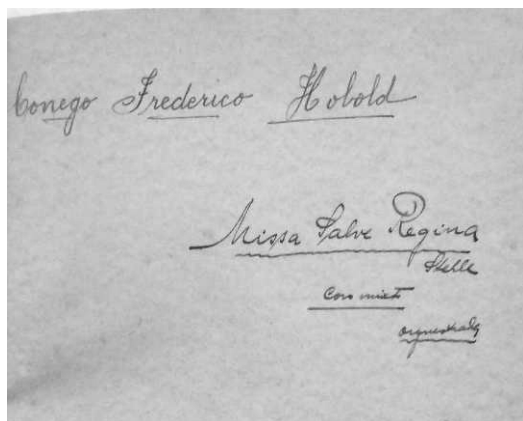 Conego Frederico Hobold
Missa Salve Regina
Stelle
Coro mixto
orquestrada